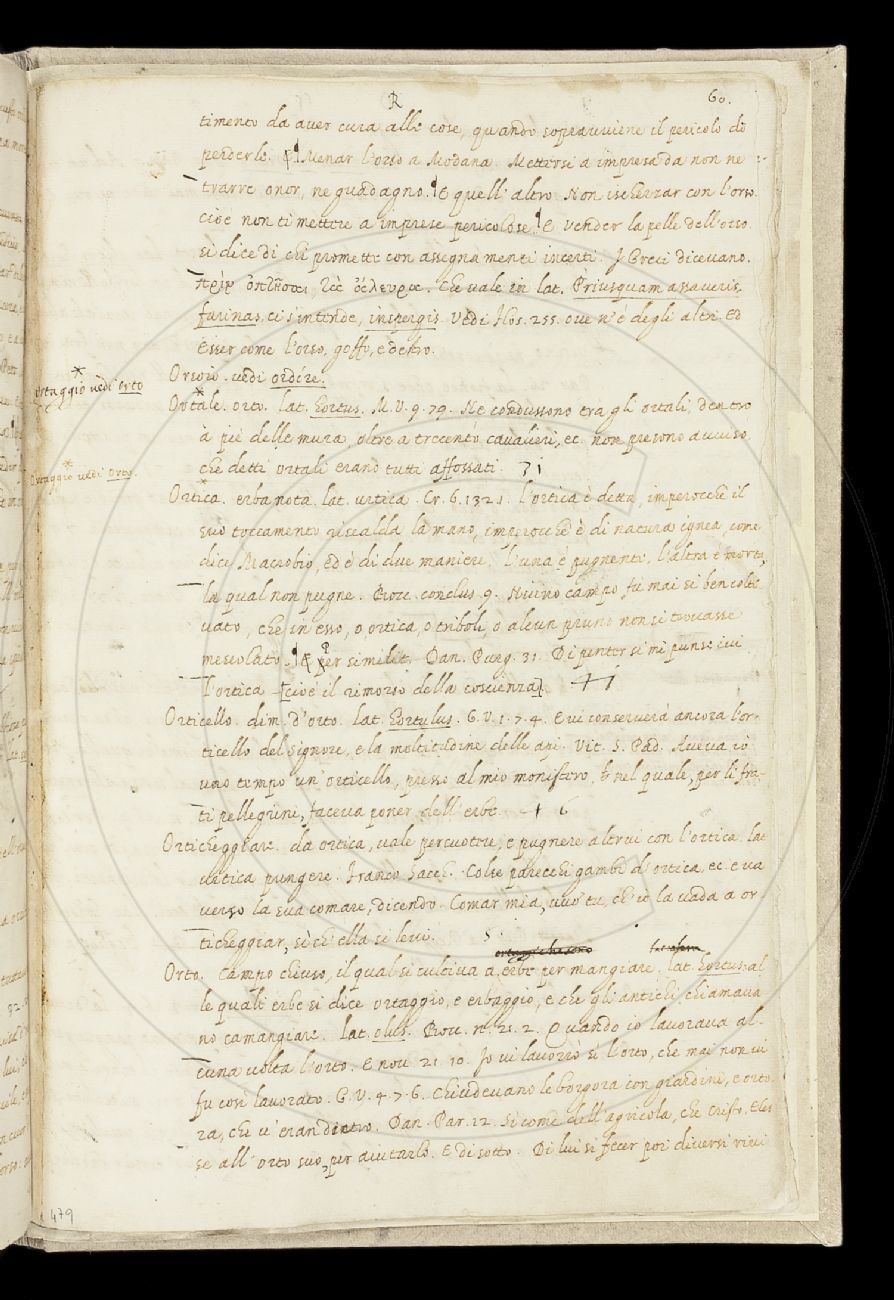 R
60.
timento da aver cura alle cose, quando sopravviene il pericolo di
perderle. E Menar l'orso a Modana. Mettersi a impresa da non ne
trarre onor, ne guadagno. E quell' altro. Non ischerzar con l'orso.
cioè non ti mettere a imprese pericolose. E vender la pelle dell'orso.
si dice di chi promette con assegnamenti incerti. I Greci dicevano.
che vale in lat. Priusquam assaveris
farinas, ci s'intende, inspergis. Vedi Flos. 255. ove n'è degli altri. Ed
Esser come l'orso, goffo, e destro.
Orsoio. vedi ordire.
* ortaggio vedi orto
Ortale. orto. lat. Hortus. M.V.9.79. Ne condussono tra gli ortali, dentro
à piè delle mura, oltre a trecento cavalieri, ec. non presono avviso
che detti ortali erano tutti affossati. 31
* Ortaggio vedi Orto.
Ortica. erba nota. lat. urtica. Cr. 6.132.1. l'ortica è detta, imperocchè il
suo toccamento riscalda la mano, imperocchè è di natura ignea, come
dice Macrobio, ed è di due maniere, l'una è pugnente, l'altra è morta,
la qual non pugne. Bocc. conclus. 9. Niuno campo fu mai si ben colti-
vato, che in esso, o ortica, o triboli, o alcun pruno non si trovasse
mescolato. E per similit. Dan. Purg. 31. Di penter si mi punse ivi
l'ortica [cioè il rimorso della coscienza]. 41
Orticello. dim. d'orto. lat. Hortulus. G.V.1.7.4. E vi conserverà ancora l'or-
ticello del Signore, e la moltitudine delle api. Vit. S. Pad. Aveva io
uno tempo un' orticello, presso al mio monistero, nel quale, per li fra-
ti pellegrini, faceva poner dell' erbe. 6
Orticheggiare. da ortica, vale percuotere, e pugnere altrui con l'ortica. lat
urtica pungere. Franco Sacch. Colse parecchi gambi d'ortica, ec. e va
verso la sua comare, dicendo. Comar mia, vuo' tu, ch'io la vada a or-
ticheggiar, sì ch'ella si levi. 5
Orto. Campo chiuso, il qual si cultiva a erbe per mangiare. lat. hortus. al
le quali erbe si dice ortaggio, e erbaggio, e che gli antichi chiamava
no camangiare. lat. olus. Bocc. n. 21. 2. Quando io lavorava al-
cuna volta l'orto. E nov. 21. 10. Io vi lavorrò sì l'orto, che mai non vi
fu così lavorato. G.V.4.7.6. Chiudevano le borgora con giardini, e orto
ra, che v'eran dentro. Dan. Par. 12. Si come dell' agricola, che Cristo, Eles
se all' orto suo, per aiutarlo. E di sotto. Di lui si fecer poi diversi rivi
479